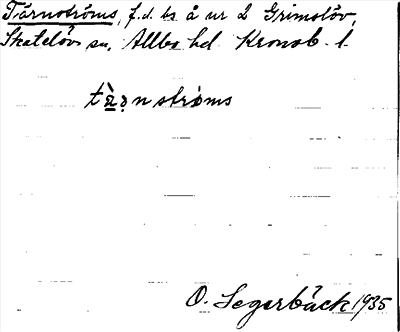 Tärnströms, f.d. ts å nr 2 Grimslöv,
Skatelöv sn, Allbo hd Kronob. l.
tä̀ṇnströms
O. Segerbäck 1935